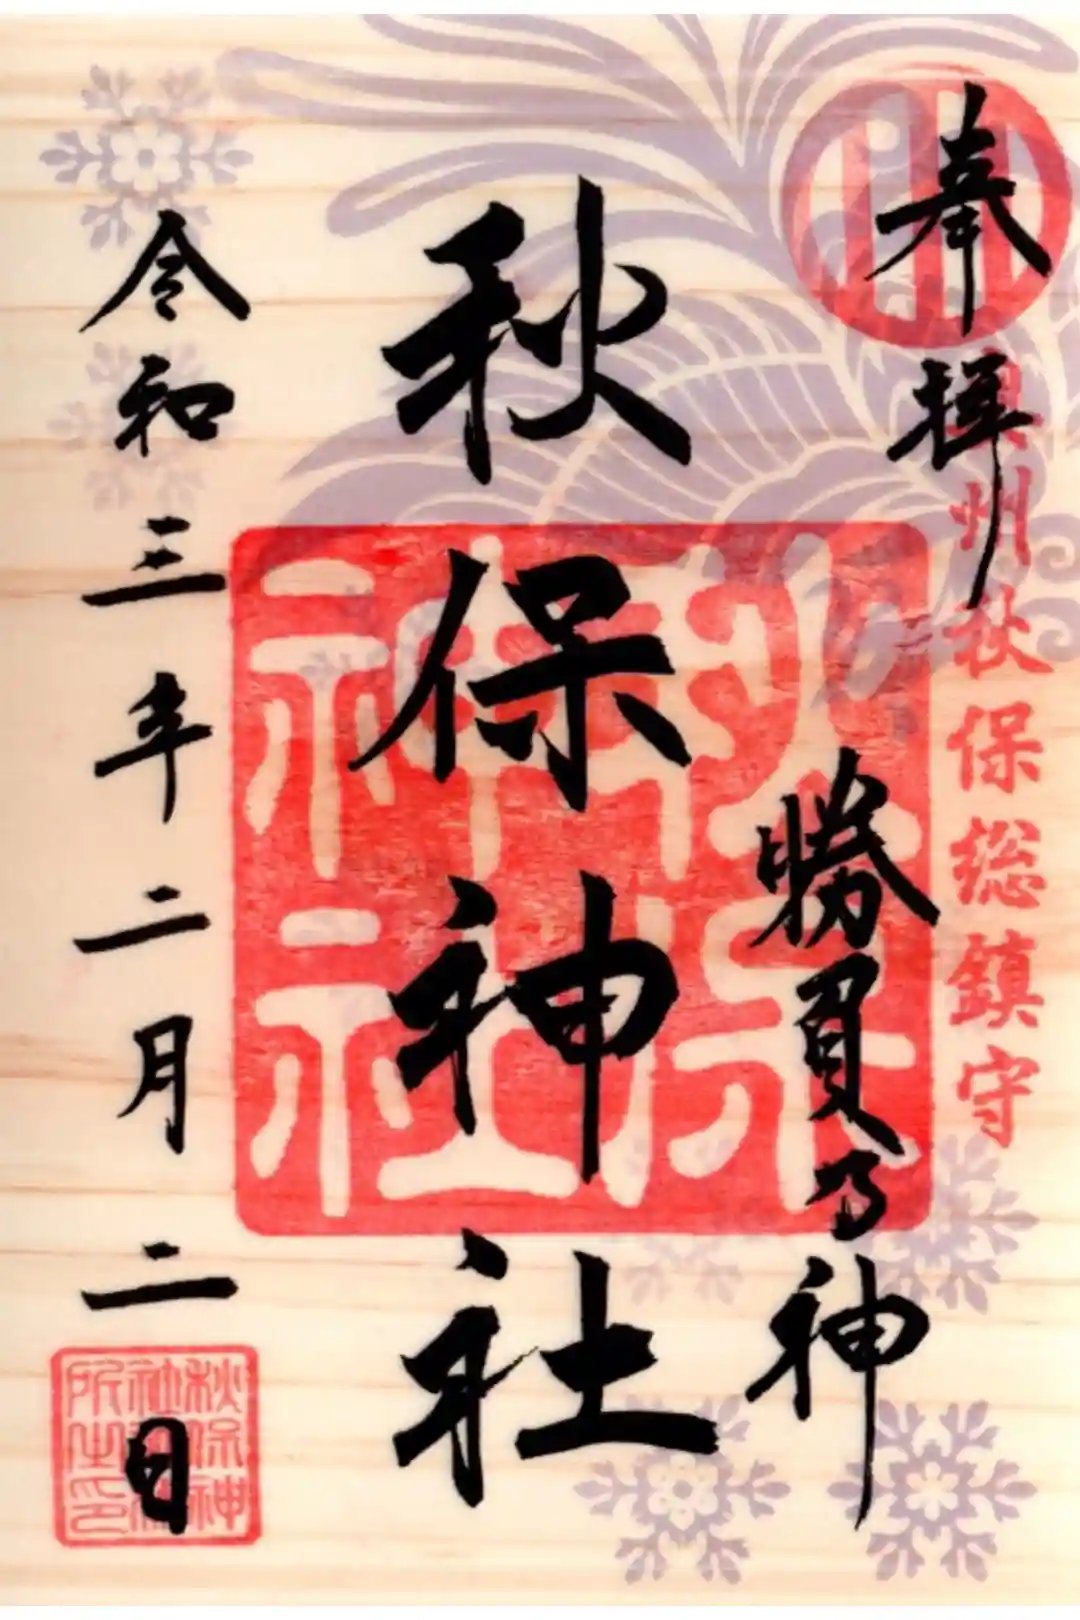 奉拝
奥州秋保総鎮守
勝負乃神
秋保神社
秋保神社
令和三年二月二日
秋保神
社
所之印